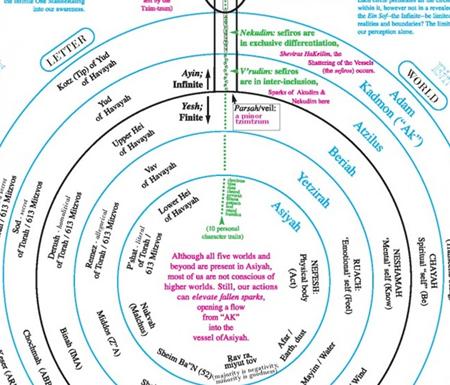 into our awareness.
left by the
Tzim-tzum)
the Ein Sof-the Infinite-be limited
realities and boundaries? The limit
our perception alone.
LETTER
WORLD
Nekudim: sefiros are
in exclusive differentiation,
Sheviras HaKeilim, the
Shattering of the Vessels
(the sefiros) occurs.
V'rudim: sefiros
are in inter-inclusion,
Sparks of Akudim &
Nekudim here
Ayin;
Infinite
Yesh;
Finite
Parsah/veil:
a minor
tzimtzum
Kotz (Tip) of Yud
of Havayah
Yud
of Havayah
Upper Hei
of Havayah
Vav
of Havayah
Lower Hei
of Havayah
Adam
Kadmon ("Ak")
Atzilus
Beriah
Yetzirah
Asiyah
(10 personal
character traits)
Sod - secret
of Torah / 613 Mitzvos
Derush - homiletical
of Torah / 613 Mitzvos
Remez - allegorical
of Torah / 613 Mitzvos
P'shat - literal
of Torah /
613 Mitzvos
Although all five worlds and
beyond are present in Asiyah,
most of us are not conscious of
higher worlds. Still, our actions
can elevate fallen sparks,
opening a flow
from "AK"
into the
vessel of Asiyah.
NEFESH:
Physical body
(Act)
RUACH:
'Emotional' self (Feel)
NESHAMAH
'Mental' self (Know)
CHAYAH
Spiritual "self" (Be)
Nukvah
(Malchus)
Middos (Z"A)
Binah (IMA)
Chochmah
Keser
Sheim Ba"N (52)
Rav ra,
miyut tov
(majority is negativity,
minority is goodness)
Afar /
Earth, dust
Mayim / Water
Wind